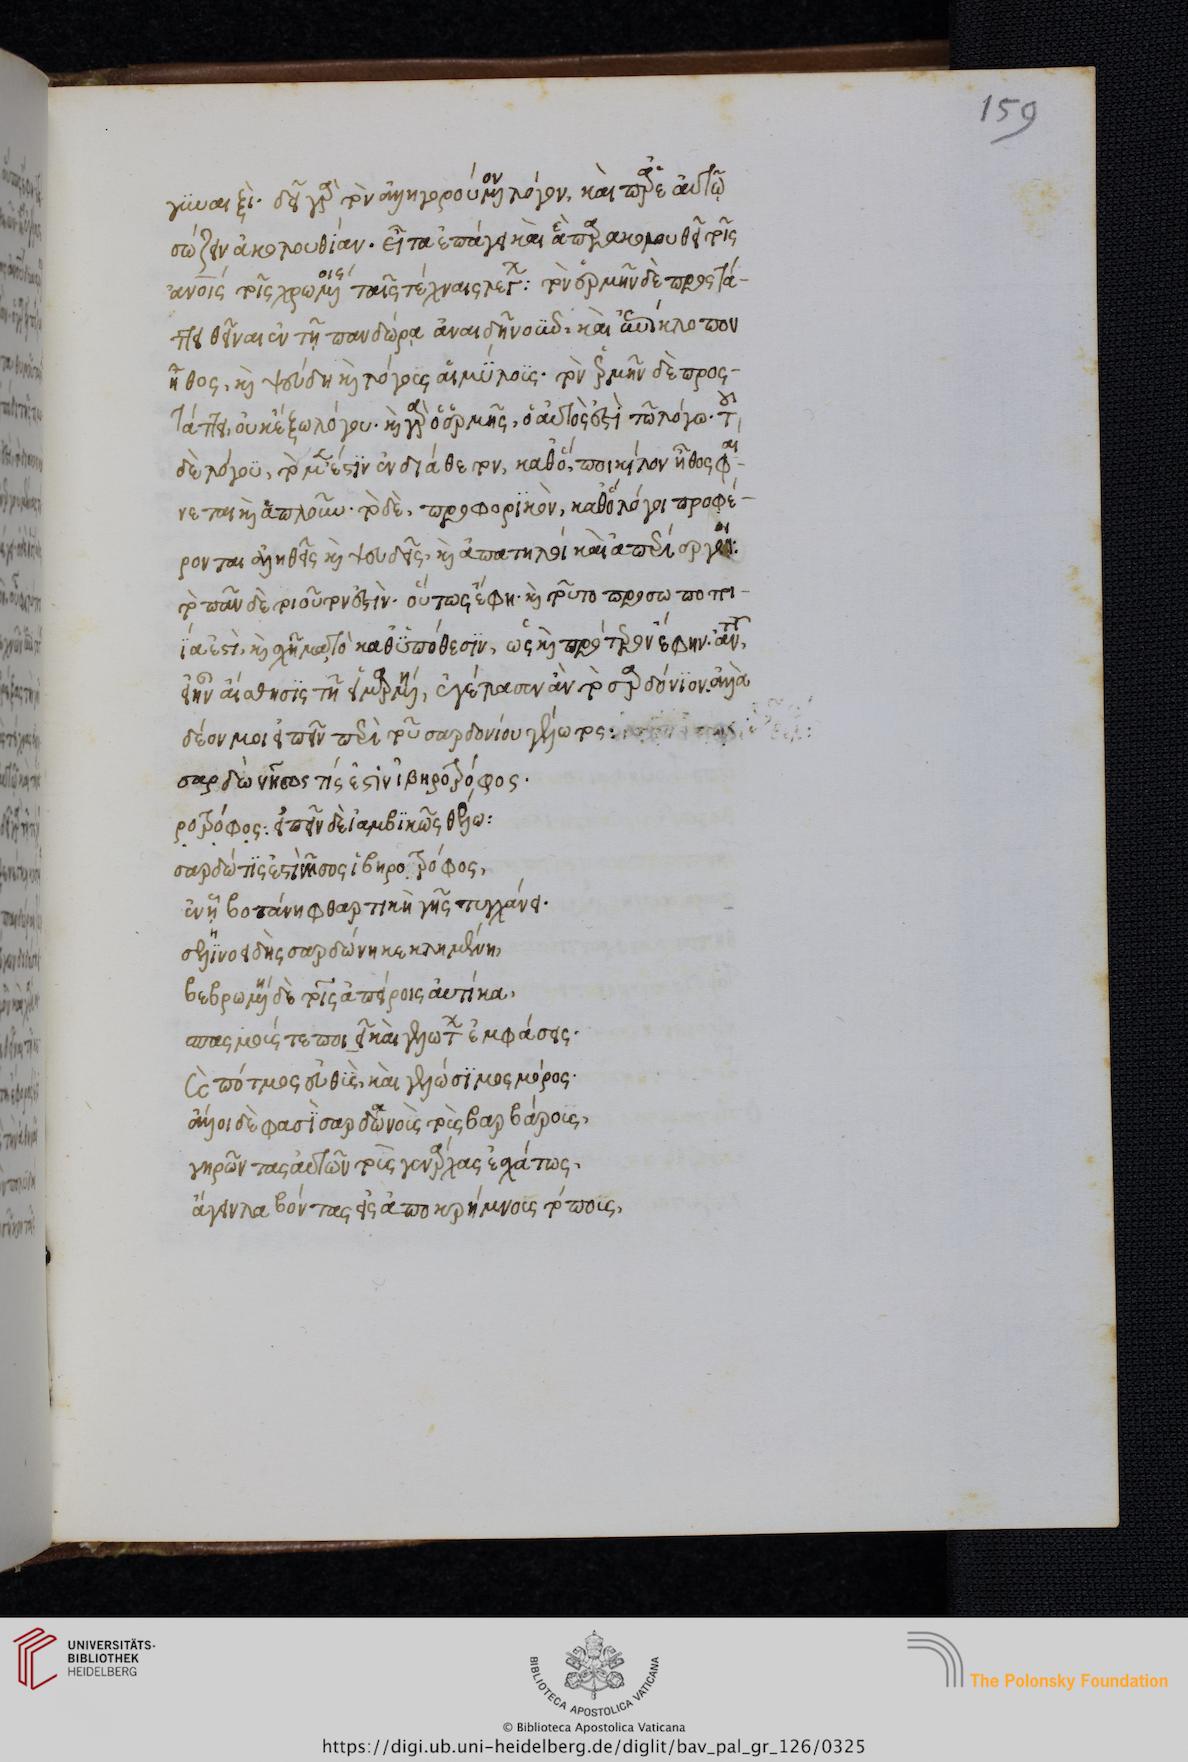 159
γυναιξί. δεῖ γὰρ τὸν ἀλληγορούμενον λόγον, καὶ παρ' ἑαυτῷ
σώζειν ἀκολουθίαν. εἶτα ἐπάγει καὶ ἃ παρακολουθεῖ τοῖς
ἀνοις τοῖς χρωμένοις ταῖς τέχναις λέγων: τὸν ἑρμῆν δὲ προστά-
ττει θεῖναι ἐν τῇ πανδώρα ἀναιδῆ νοῦν. καὶ ἐπίκλοπον
ἦθος, καὶ ψεύδη καὶ λόγοις αἱμύλοις. τὸν ἑρμῆν δὲ προσ-
τάττει, οὐκ ἔξω λόγου. καὶ γὰρ ὁ ἑρμῆς, ὁ αὐτὸς ἐστὶ τῷ λόγω. τοῦ
δὲ λόγου, τὸ μέν ἐστιν ἐνδιάθετον, καθὸ, ποικίλον ἦθος φαί-
νεται καὶ ἁπλοῦν. τὸ δὲ, προφορικὸν, καθὸ λόγοι προφέ-
ρονται ἀληθεῖς καὶ ψευδεῖς, καὶ ἀπατηλοί καὶ ἀπερίεργοι:
τὸ πᾶν δὲ τοιοῦτον ἐστὶν. οὕτως ἔφη. καὶ τοῦτο προσωποποι-
ία ἐστὶ, καὶ σχῆμα τὸ καθ' ὑπόθεσιν, ὡς καὶ πρότερον ἔφην.
εἰ ἦν αἴσθησις τῇ εἱμαρμένη, ἐγέλασεν ἂν τὸ σαρδόνιον. ἀλλὰ
δέον μοι εἰπεῖν περὶ τοῦ σαρδονίου γέλωτος:
σαρδὼ νῆσος τίς ἐστιν ἰβηροτρόφος.
ροτρόφος: εἰπεῖν δὲ ἰαμβικῶς θέλω:
σαρδώ τίς ἐστι νῆσος ἰβηροτρόφος,
ἐν ᾗ βοτάνη φθαρτικὴ γῆς τυγχάνει.
σελινοειδὴς σαρδώνη κεκλημένη,
βεβρωμένη δὲ τοῖς ἀπείροις αὐτίκα,
σπασμούς τε ποιεῖ καὶ γέλωτος ἐμφάσεις.
καὶ πότμος εὐθὺς, καὶ γελώσιμος μόρος.
ἄλλοι δὲ φασὶ σαρδώνοις τοῖς βαρβάροις,
γηρῶντας αὐτῶν τοὺς γονάρχας ἐσχάτως,
ἄγειν λαβόντας εἰς ἀποκρήμνοις τόποις,
UNIVERSITÄTS-
BIBLIOTHEK
HEIDELBERG
BIBLIOTECA APOSTOLICA VATICANA
The Polonsky Foundation
© Biblioteca Apostolica Vaticana
https://digi.ub.uni-heidelberg.de/diglit/bav_pal_gr_126/0325